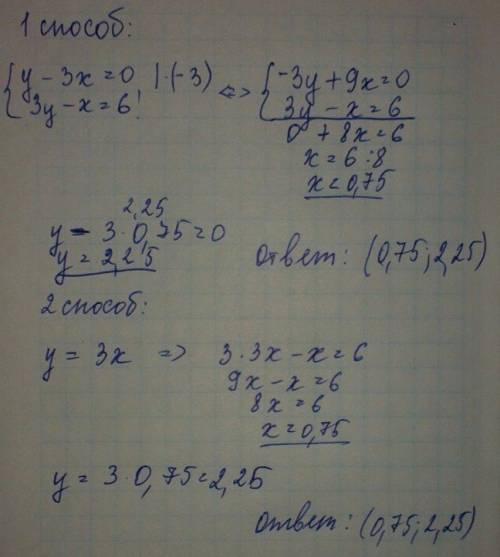 1 способ:
{ y - 3x = 0 | ·(-3) <=> { -3y + 9x = 0
3y - x = 6 ! 3y - x = 6
0 + 8x = 6
x = 6 : 8
x = 0,75
2,25
y - 3·0,75 = 0
y = 2,25 ответ: (0,75; 2,25)
2 способ:
y = 3x => 3·3x - x = 6
9x - x = 6
8x = 6
x = 0,75
y = 3·0,75 = 2,25
ответ: (0,75; 2,25)